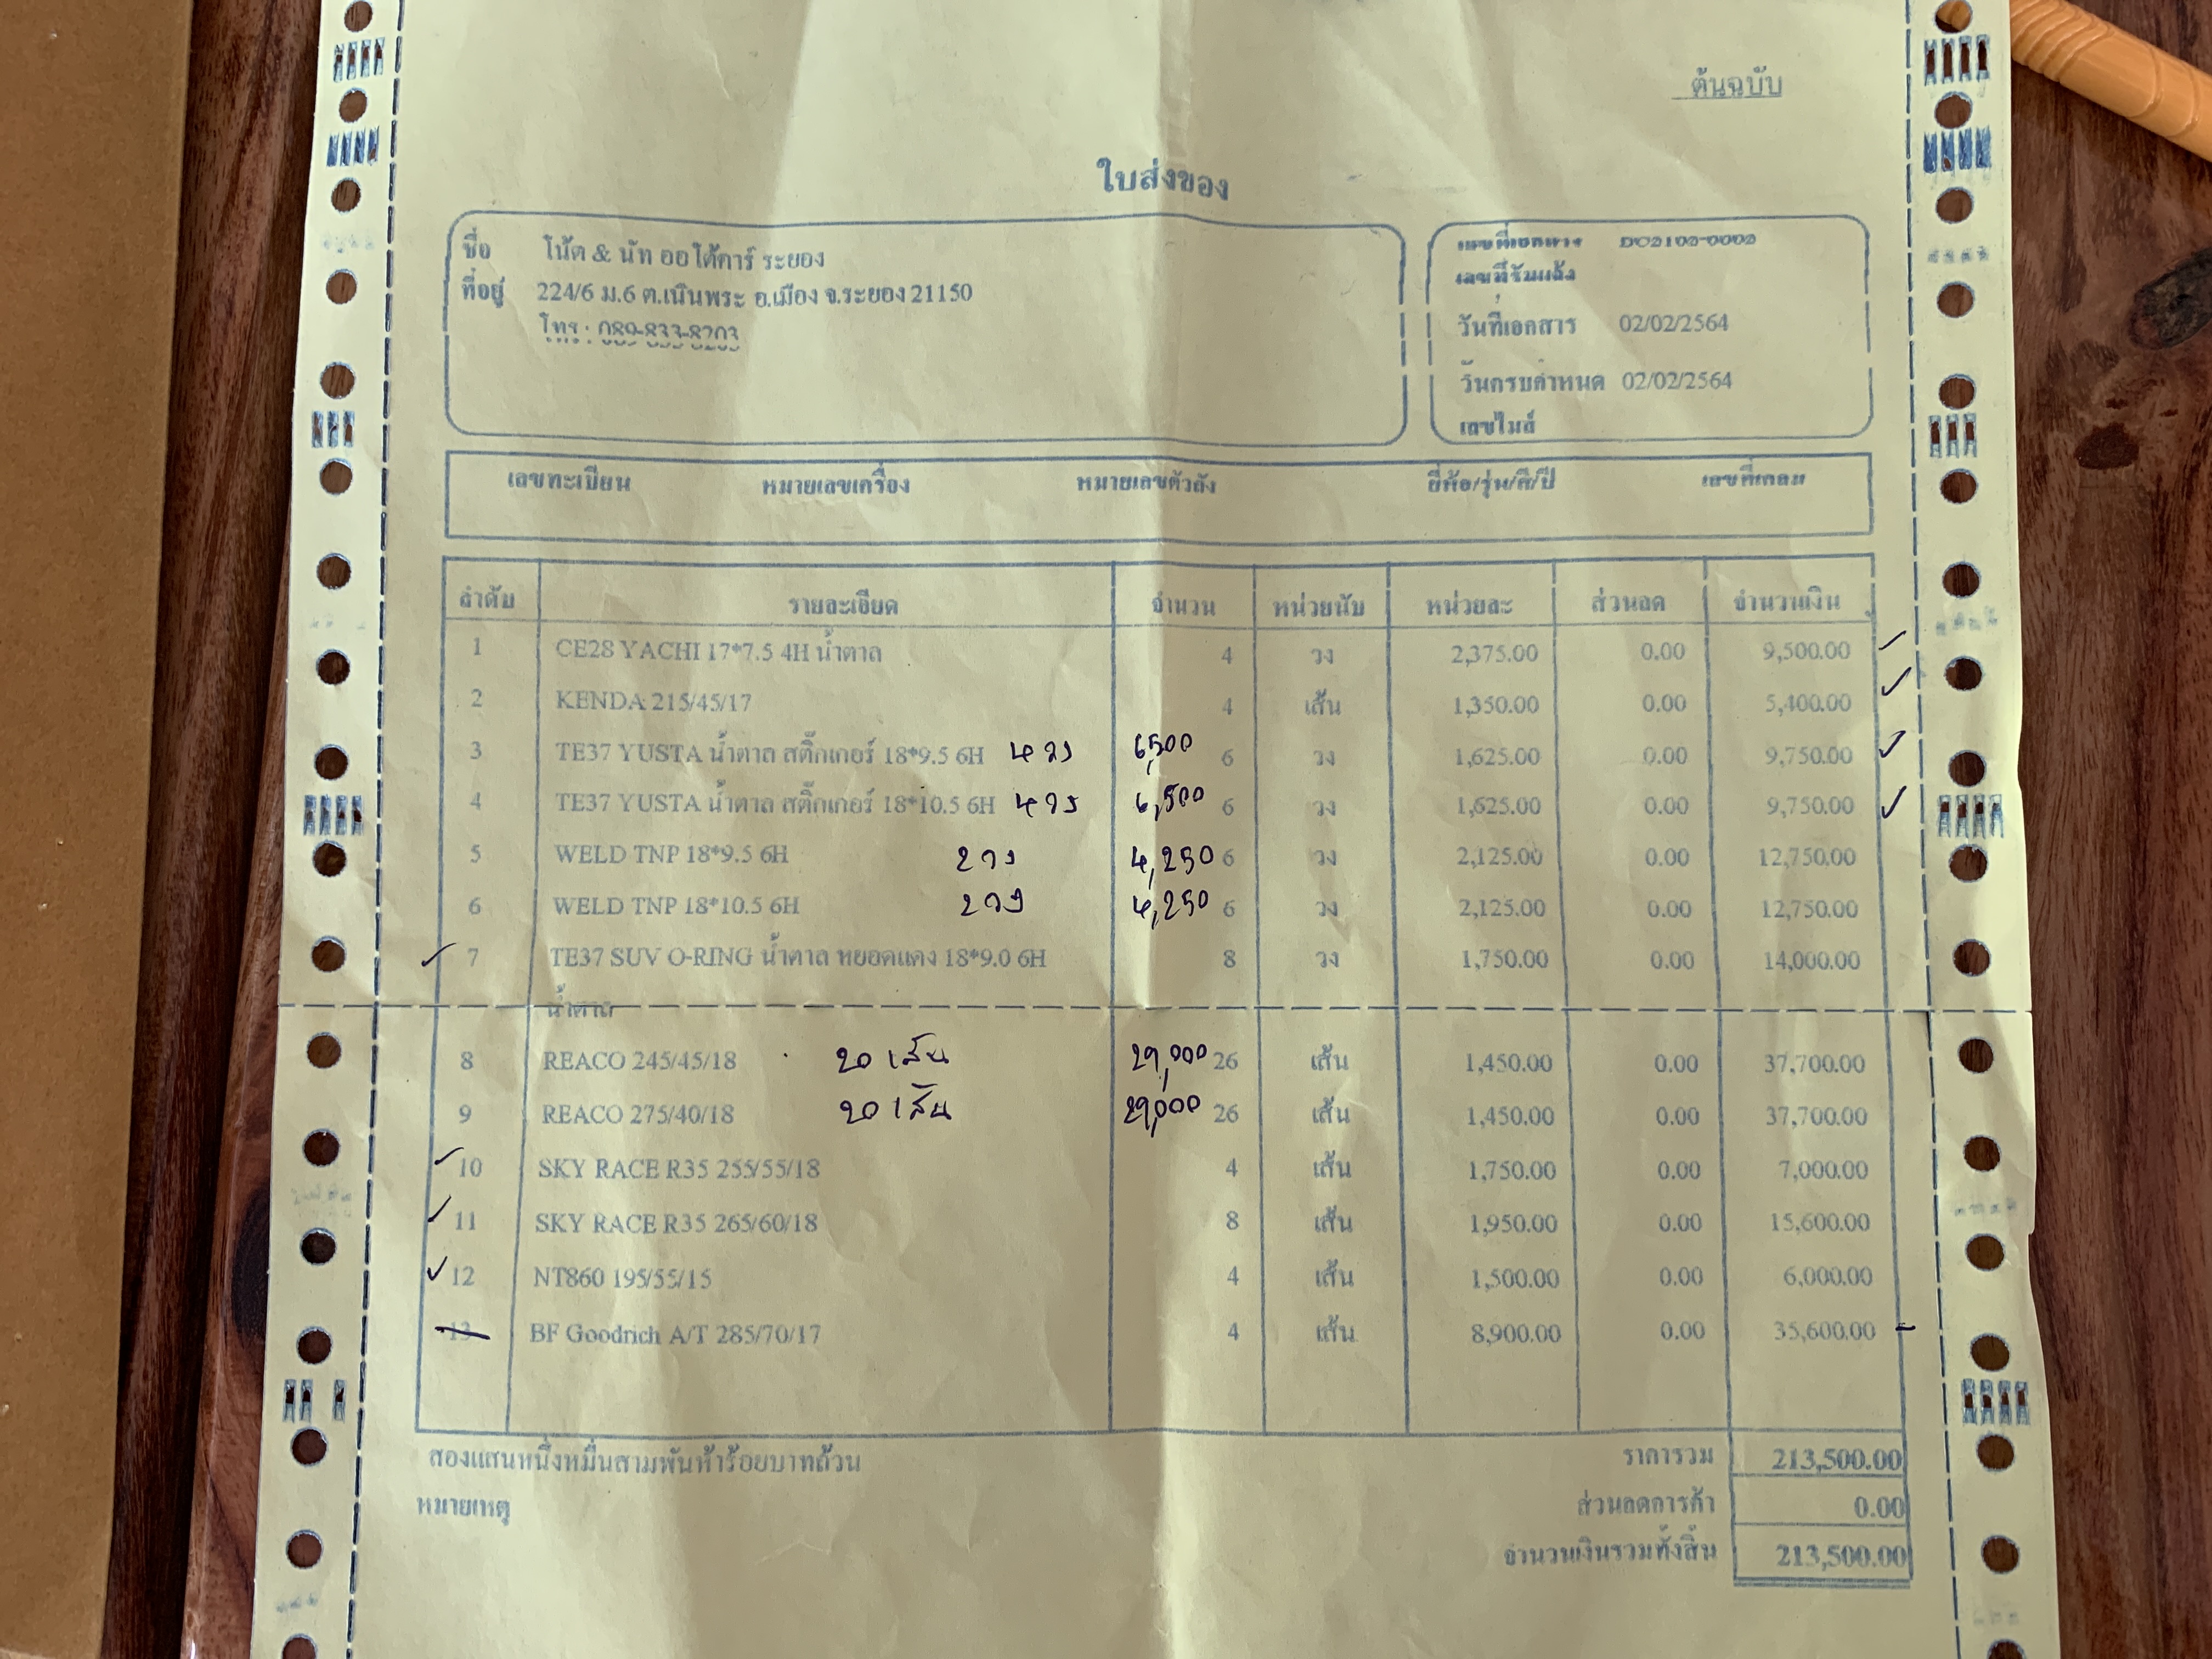 ต้นฉบับ
ใบส่งของ
ชื่อ โน้ต & นัท ออโต้คาร์ ระยอง
ที่อยู่ 224/6 ม.6 ต.เนินพระ อ.เมือง จ.ระยอง 21150
โทร : 089-833-8203
เลขที่เอกสาร
เลขที่รับแจ้ง
วันที่เอกสาร 02/02/2564
วันครบกำหนด 02/02/2564
เลขไมล์
เลขทะเบียน หมายเลขเครื่อง หมายเลขตัวถัง ยี่ห้อ/รุ่น/สี/ปี เลขที่เคลม
ลำดับ รายละเอียด จำนวน หน่วยนับ หน่วยละ ส่วนลด จำนวนเงิน
1 CE28 YACHI 17*7.5 4H น้ำตาล 4 วง 2,375.00 0.00 9,500.00
2 KENDA 215/45/17 4 เส้น 1,350.00 0.00 5,400.00
3 TE37 YUSTA น้ำตาล สติ๊กเกอร์ 18*9.5 6H 4 วง 6,500 6 วง 1,625.00 0.00 9,750.00
4 TE37 YUSTA น้ำตาล สติ๊กเกอร์ 18*10.5 6H 4 วง 6,500 6 วง 1,625.00 0.00 9,750.00
5 WELD TNP 18*9.5 6H 2 วง 4,250 6 วง 2,125.00 0.00 12,750.00
6 WELD TNP 18*10.5 6H 2 วง 4,250 6 วง 2,125.00 0.00 12,750.00
7 TE37 SUV O-RING น้ำตาล หยอดแดง 18*9.0 6H 8 วง 1,750.00 0.00 14,000.00
น้ำตาล
8 REACO 245/45/18 20 เส้น 29,000 26 เส้น 1,450.00 0.00 37,700.00
9 REACO 275/40/18 20 เส้น 29,000 26 เส้น 1,450.00 0.00 37,700.00
10 SKY RACE R35 255/55/18 4 เส้น 1,750.00 0.00 7,000.00
11 SKY RACE R35 265/60/18 8 เส้น 1,950.00 0.00 15,600.00
12 NT860 195/55/15 4 เส้น 1,500.00 0.00 6,000.00
13 BF Goodrich A/T 285/70/17 4 เส้น 8,900.00 0.00 35,600.00
สองแสนหนึ่งหมื่นสามพันห้าร้อยบาทถ้วน ราคารวม 213,500.00
หมายเหตุ ส่วนลดการค้า 0.00
จำนวนเงินรวมทั้งสิ้น 213,500.00